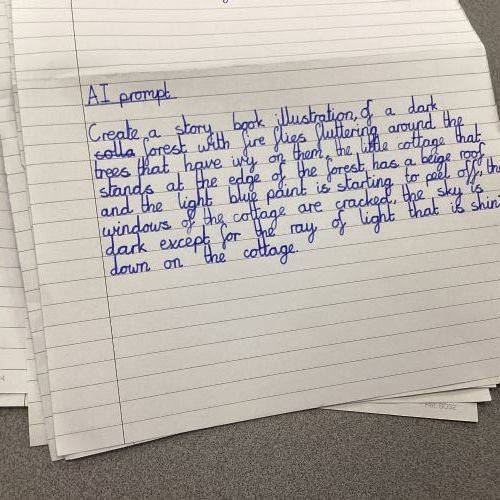 AI prompt
Create a story book illustration, of a dark
solla forest with fire flies fluttering around the
trees that have ivy on them, the little cottage that
stands at the edge of the forest has a beige roof
and the light blue paint is starting to peel off, the
windows of the cottage are cracked, the sky is
dark except for the ray of light that is shin
down on the cottage.